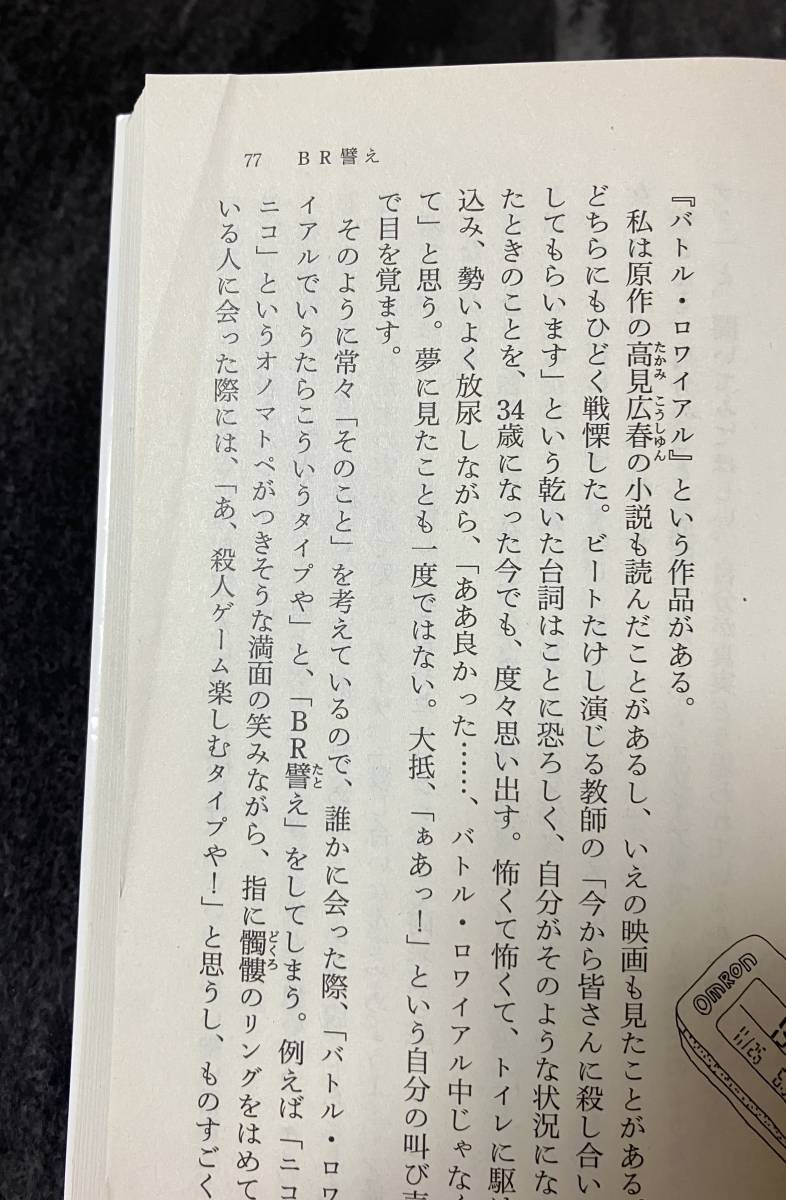 77 BR譬え
『バトル・ロワイアル』という作品がある。
私は原作の高見広春の小説も読んだことがあるし、いえの映画も見たことがある。
たかみ こうしゅん
どちらにもひどく戦慄した。ビートたけし演じる教師の「今から皆さんに殺し合い
してもらいます」という乾いた台詞はことに恐ろしく、自分がそのような状況にな
たときのことを、34歳になった今でも、度々思い出す。怖くて怖くて、トイレに駆
込み、勢いよく放尿しながら、「ああ良かった……、バトル・ロワイアル中じゃな
て」と思う。夢に見たことも一度ではない。大抵、「ぁあっ！」という自分の叫び
で目を覚ます。
そのように常々「そのこと」を考えているので、誰かに会った際、「バトル・ロワ
イアルでいうたらこういうタイプや」と、「BR譬え」をしてしまう。例えば「ニコ
たと
ニコ」というオノマトペがつきそうな満面の笑みながら、指に髑髏のリングをはめて
どくろ
いる人に会った際には、「あ、殺人ゲーム楽しむタイプや！」と思うし、ものすごく
OMRON
11/25